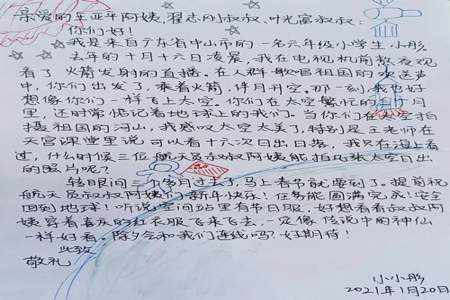 亲爱的王亚平阿姨,翟志刚叔叔,叶光富叔叔:
你们好!
我是来自广东省中山市的一名六年级小学生小彤
去年的十月十六日凌晨,我在电视机前熬夜观
看了火箭发射的直播。在人群歌唱祖国的欢送声
中,你们出发了,乘着火箭,伴月升空。那一刻,我也好
想像你们一样飞上太空。你们在太空繁忙的三个月
里,还时常惦记着地球上的我们。当你们在太空拍
摄祖国的河山,我感叹太空太美了,特别是王老师在
天宫课堂里说可以看十六次日出日落,我只在海上看
过,什么时候三位航天员叔叔阿姨能拍几张太空日出
的照片呢?
转眼间三个多月过去了,马上春节就要到了。提前祝
航天员叔叔阿姨们新年快乐!任务能圆满完成!安全
回到地球!听说空间站里有春节日服,好想看看叔叔阿
姨穿着喜庆的红衣服飞来飞去,一定像传说中的神仙
一样好看。除夕会和我们连线吗?好期待!
此致
敬礼
小小彤
2021年1月20日